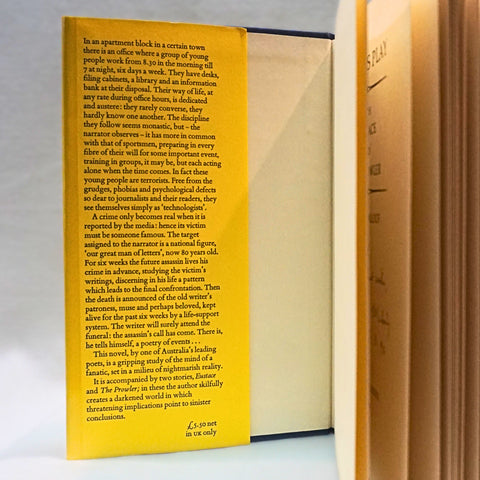 In an apartment block in a certain town
there is an office where a group of young
people work from 8.30 in the morning till
7 at night, six days a week. They have desks,
filing cabinets, a library and an information
bank at their disposal. Their way of life, at
any rate during office hours, is dedicated
and austere: they rarely converse, they
hardly know one another. The discipline
they follow seems monastic, but – the
narrator observes – it has more in common
with that of sportsmen, preparing in every
fibre of their will for some important event,
training in groups, it may be, but each acting
alone when the time comes. In fact these
young people are terrorists. Free from the
grudges, phobias and psychological defects
so dear to journalists and their readers, they
see themselves simply as 'technologists'.
A crime only becomes real when it is
reported by the media: hence its victim
must be someone famous. The target
assigned to the narrator is a national figure,
'our great man of letters', now 80 years old.
For six weeks the future assassin lives his
crime in advance, studying the victim's
writings, discerning in his life a pattern
which leads to the final confrontation. Then
the death is announced of the old writer's
patroness, muse and perhaps beloved, kept
alive for the past six weeks by a life-support
system. The writer will surely attend the
funeral: the assassin's call has come. There is,
he tells himself, a poetry of events . . .
This novel, by one of Australia's leading
poets, is a gripping study of the mind of a
fanatic, set in a milieu of nightmarish reality.
It is accompanied by two stories, Eustace
and The Prowler; in these the author skilfully
creates a darkened world in which
threatening implications point to sinister
conclusions.
£5.50 net
in UK only
PLAY